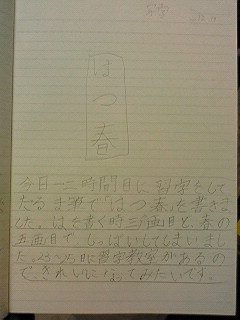 習字
はつ春
今日一二時間目に習字をして
だるま筆で「はつ春」を書きま
した。はを書く時三画目と、春の
五画目で、しっぱいしてしまいまし
た。23〜25日に習字教室があるの
できれいになってみたいです。